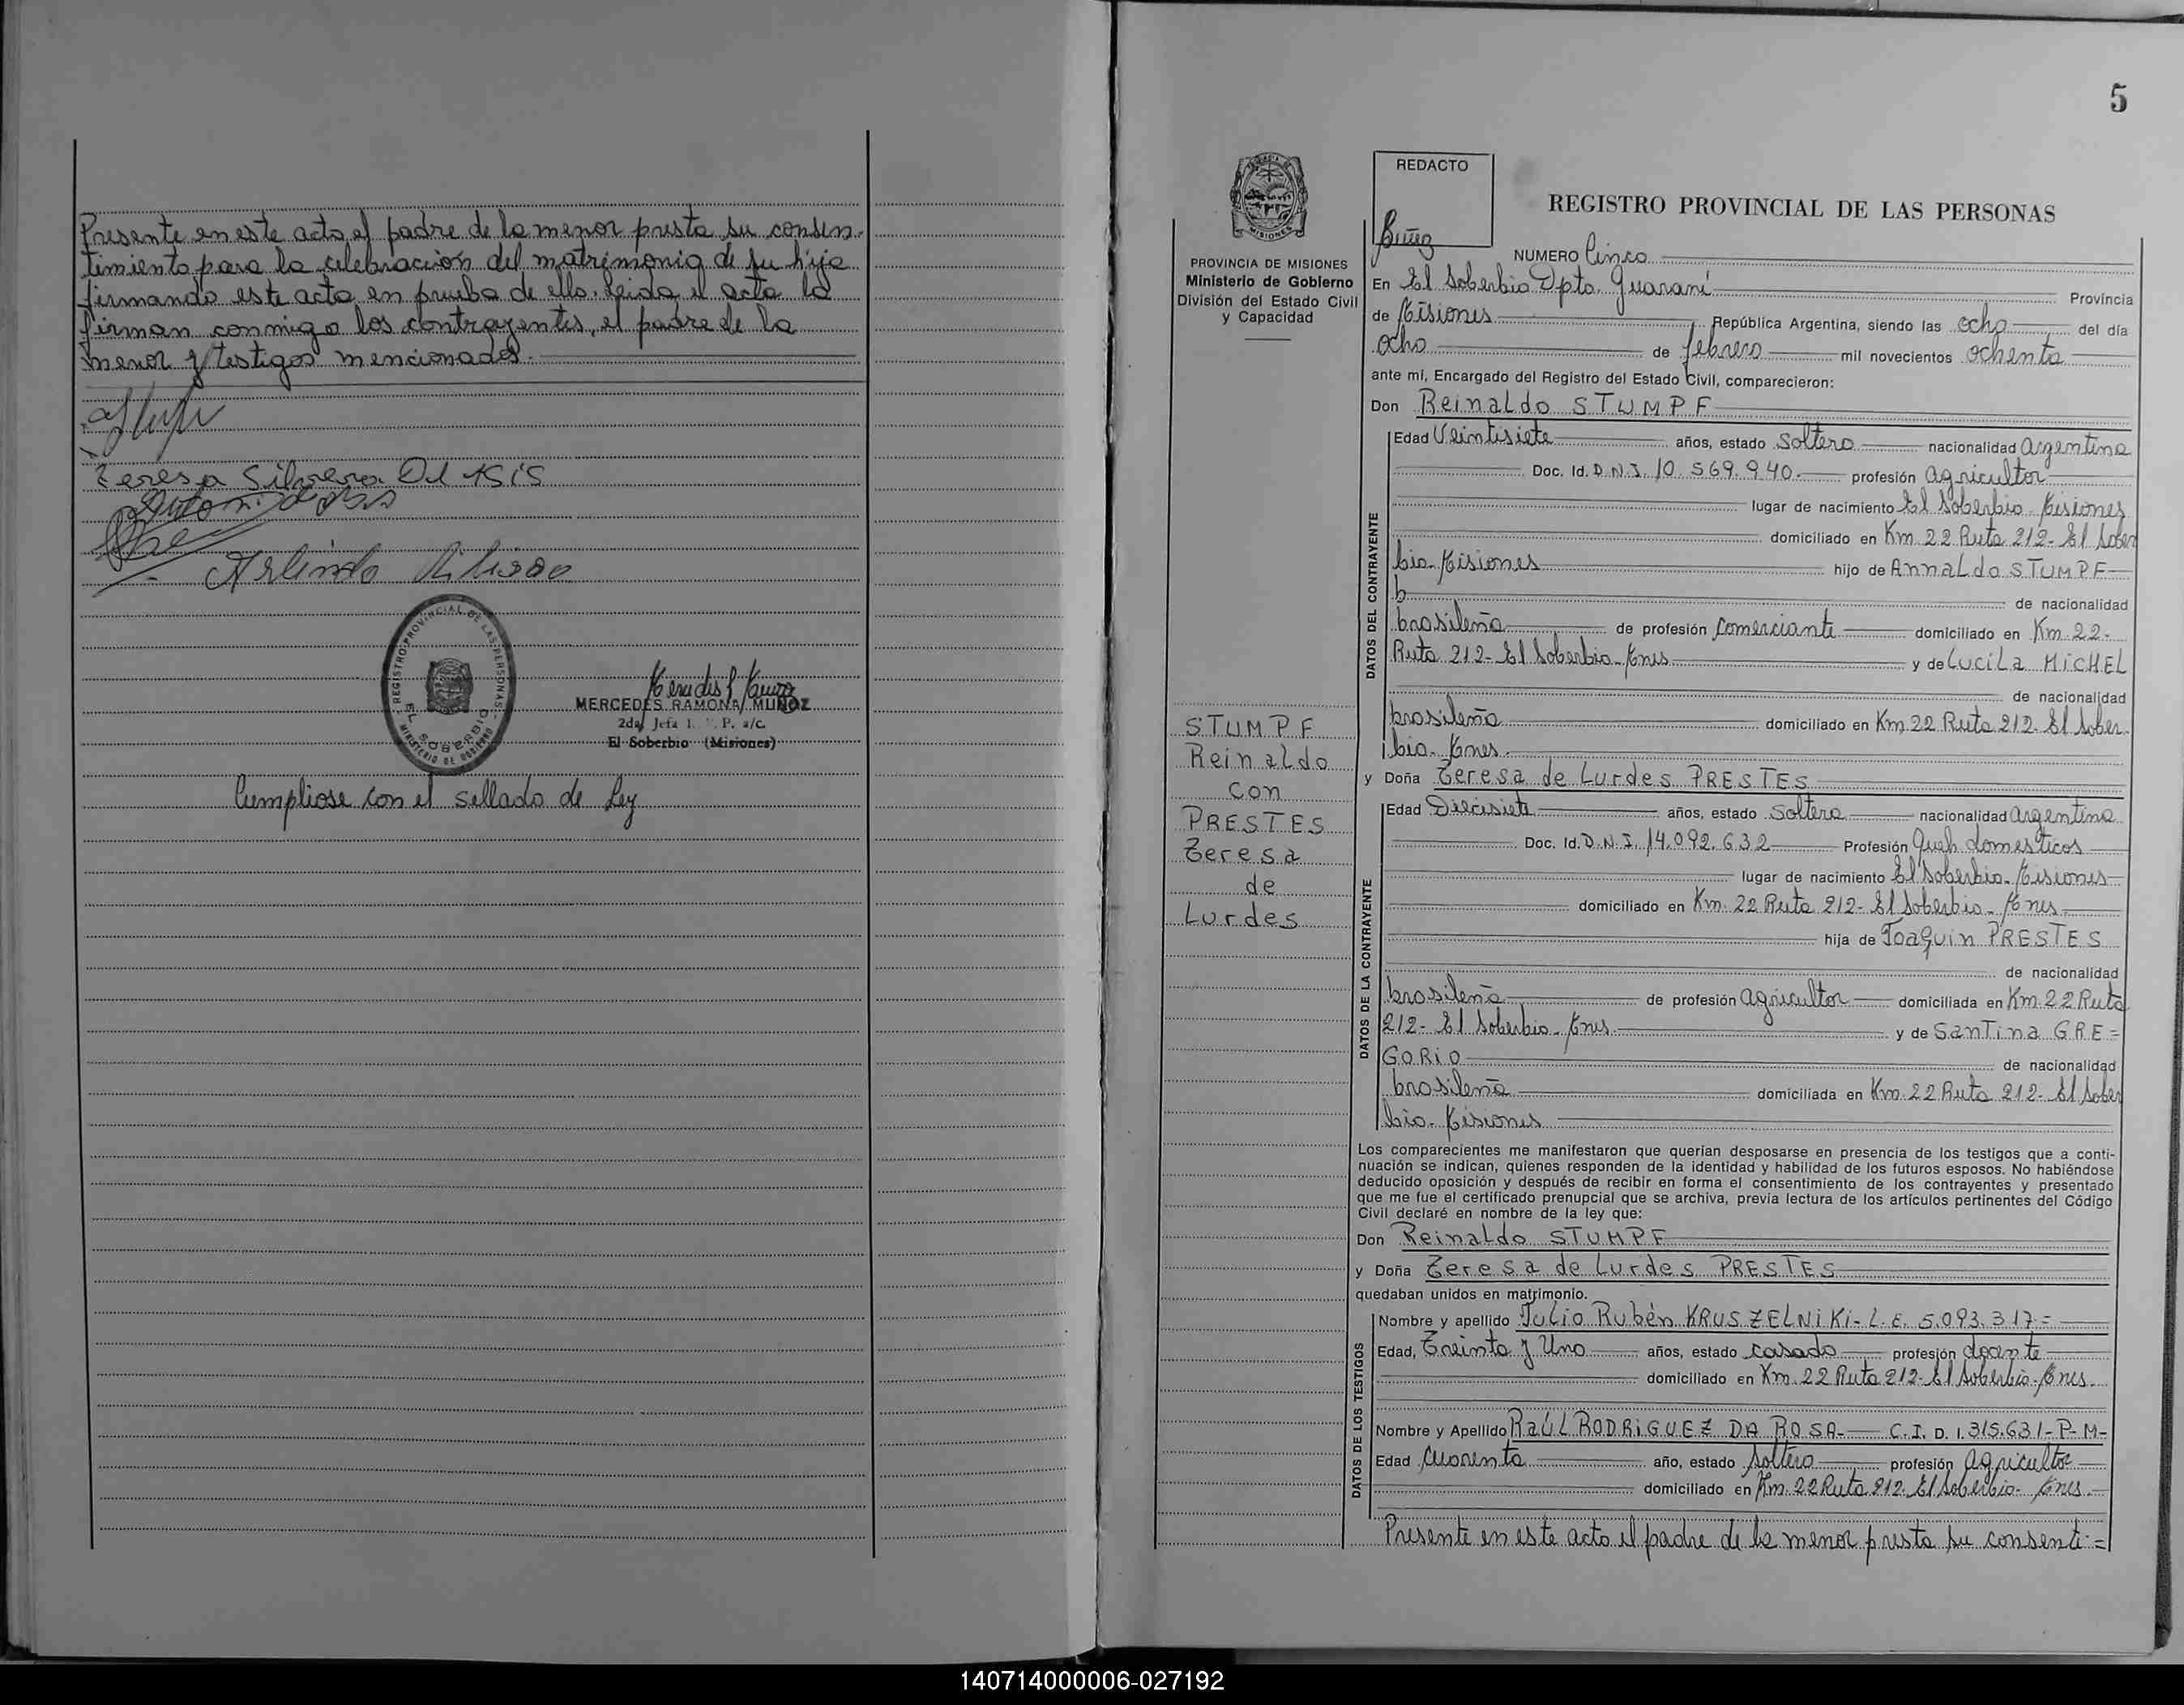 Presente en este acto el padre de la menor presta su consen-
timiento para la celebración del matrimonio de su hija
firmando este acta en prueba de ello. Leida el acta la
firman conmigo los contrayentes, el padre de la
menor y testigos mencionados.
Teresa
Arlindo
REGISTRO PROVINCIAL DE LAS PERSONAS
EL SOBERBIO
MINISTERIO DE GOBIERNO
MERCEDES RAMONA MUÑOZ
2da. Jefa P. a/c.
El Soberbio (Misiones)
Cumpliose con el sellado de Ley
5
REDACTO
REGISTRO PROVINCIAL DE LAS PERSONAS
PROVINCIA DE MISIONES
Ministerio de Gobierno
División del Estado Civil
y Capacidad
STUMPF
Reinaldo
con
PRESTES
Teresa
de
Lurdes
NUMERO Cinco
En El Soberbio Dpto. Guaraní Provincia
de Misiones República Argentina, siendo las ocho del día
ocho de febrero mil novecientos ochenta
ante mí, Encargado del Registro del Estado Civil, comparecieron:
Don Reinaldo STUMPF
DATOS DEL CONTRAYENTE
Edad Veintisiete años, estado Soltero nacionalidad argentina
Doc. Id. D.N.I. 10.569.940.- profesión agricultor
lugar de nacimiento El Soberbio-Misiones
domiciliado en Km. 22 Ruta 212- El Sober
bio-Misiones hijo de Annaldo STUMPF
b de nacionalidad
brasileña de profesión comerciante domiciliado en Km. 22-
Ruta 212- El Soberbio-Mnes y de Lucila MICHEL
de nacionalidad
brasileña domiciliado en Km 22 Ruta 212. El Sober-
bio-Mnes.
y Doña Teresa de Lurdes PRESTES
DATOS DE LA CONTRAYENTE
Edad Diecisiete años, estado Soltera nacionalidad argentina
Doc. Id. D.N.I. 14.092.632 Profesión Queh. domésticos
lugar de nacimiento El Soberbio-Misiones
domiciliado en Km. 22 Ruta 212- El Soberbio-Mnes
hija de Joaquin PRESTES
de nacionalidad
brasileña de profesión agricultor domiciliada en Km. 22 Ruta
212- El Soberbio-Mnes y de Santina GRE=
GORIO de nacionalidad
brasileña domiciliada en Km. 22 Ruta 212- El Sober
bio-Misiones
Los comparecientes me manifestaron que querían desposarse en presencia de los testigos que a conti-
nuación se indican, quienes responden de la identidad y habilidad de los futuros esposos. No habiéndose
deducido oposición y después de recibir en forma el consentimiento de los contrayentes y presentado
que me fue el certificado prenupcial que se archiva, previa lectura de los artículos pertinentes del Código
Civil declaré en nombre de la ley que:
Don Reinaldo STUMPF
y Doña Teresa de Lurdes PRESTES
quedaban unidos en matrimonio.
DATOS DE LOS TESTIGOS
Nombre y apellido Julio Rubén KRUSZELNIKI- L.E. 5.093.317=
Edad, Treinta y Uno años, estado casado profesión docente
domiciliado en Km. 22 Ruta 212- El Soberbio-Mnes.
Nombre y Apellido RaúL RODRIGUEZ DA ROSA- C.I. D. 1.315.631-P-M-
Edad Cuarenta año, estado Soltero profesión agricultor
domiciliado en Km. 22 Ruta 212. El Soberbio-Mnes.
Presente en este acto el padre de la menor presta su consenti=
140714000006-027192